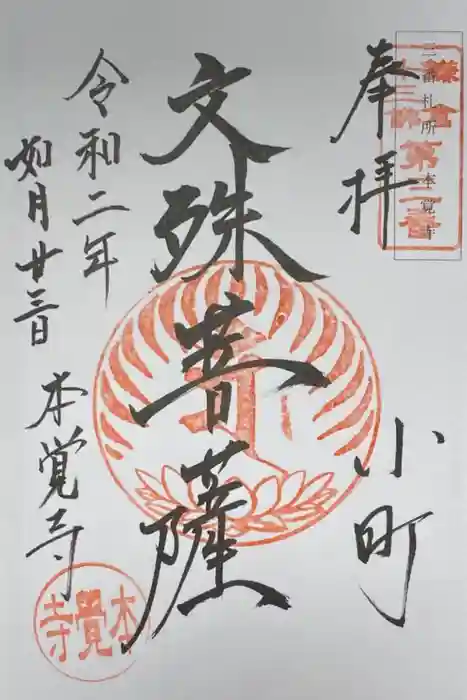 三番札所 本覚寺
鎌倉
十三佛
第三番
奉拝
小町
文殊菩薩
令和二年
如月廿三日
本覚寺
本覺寺